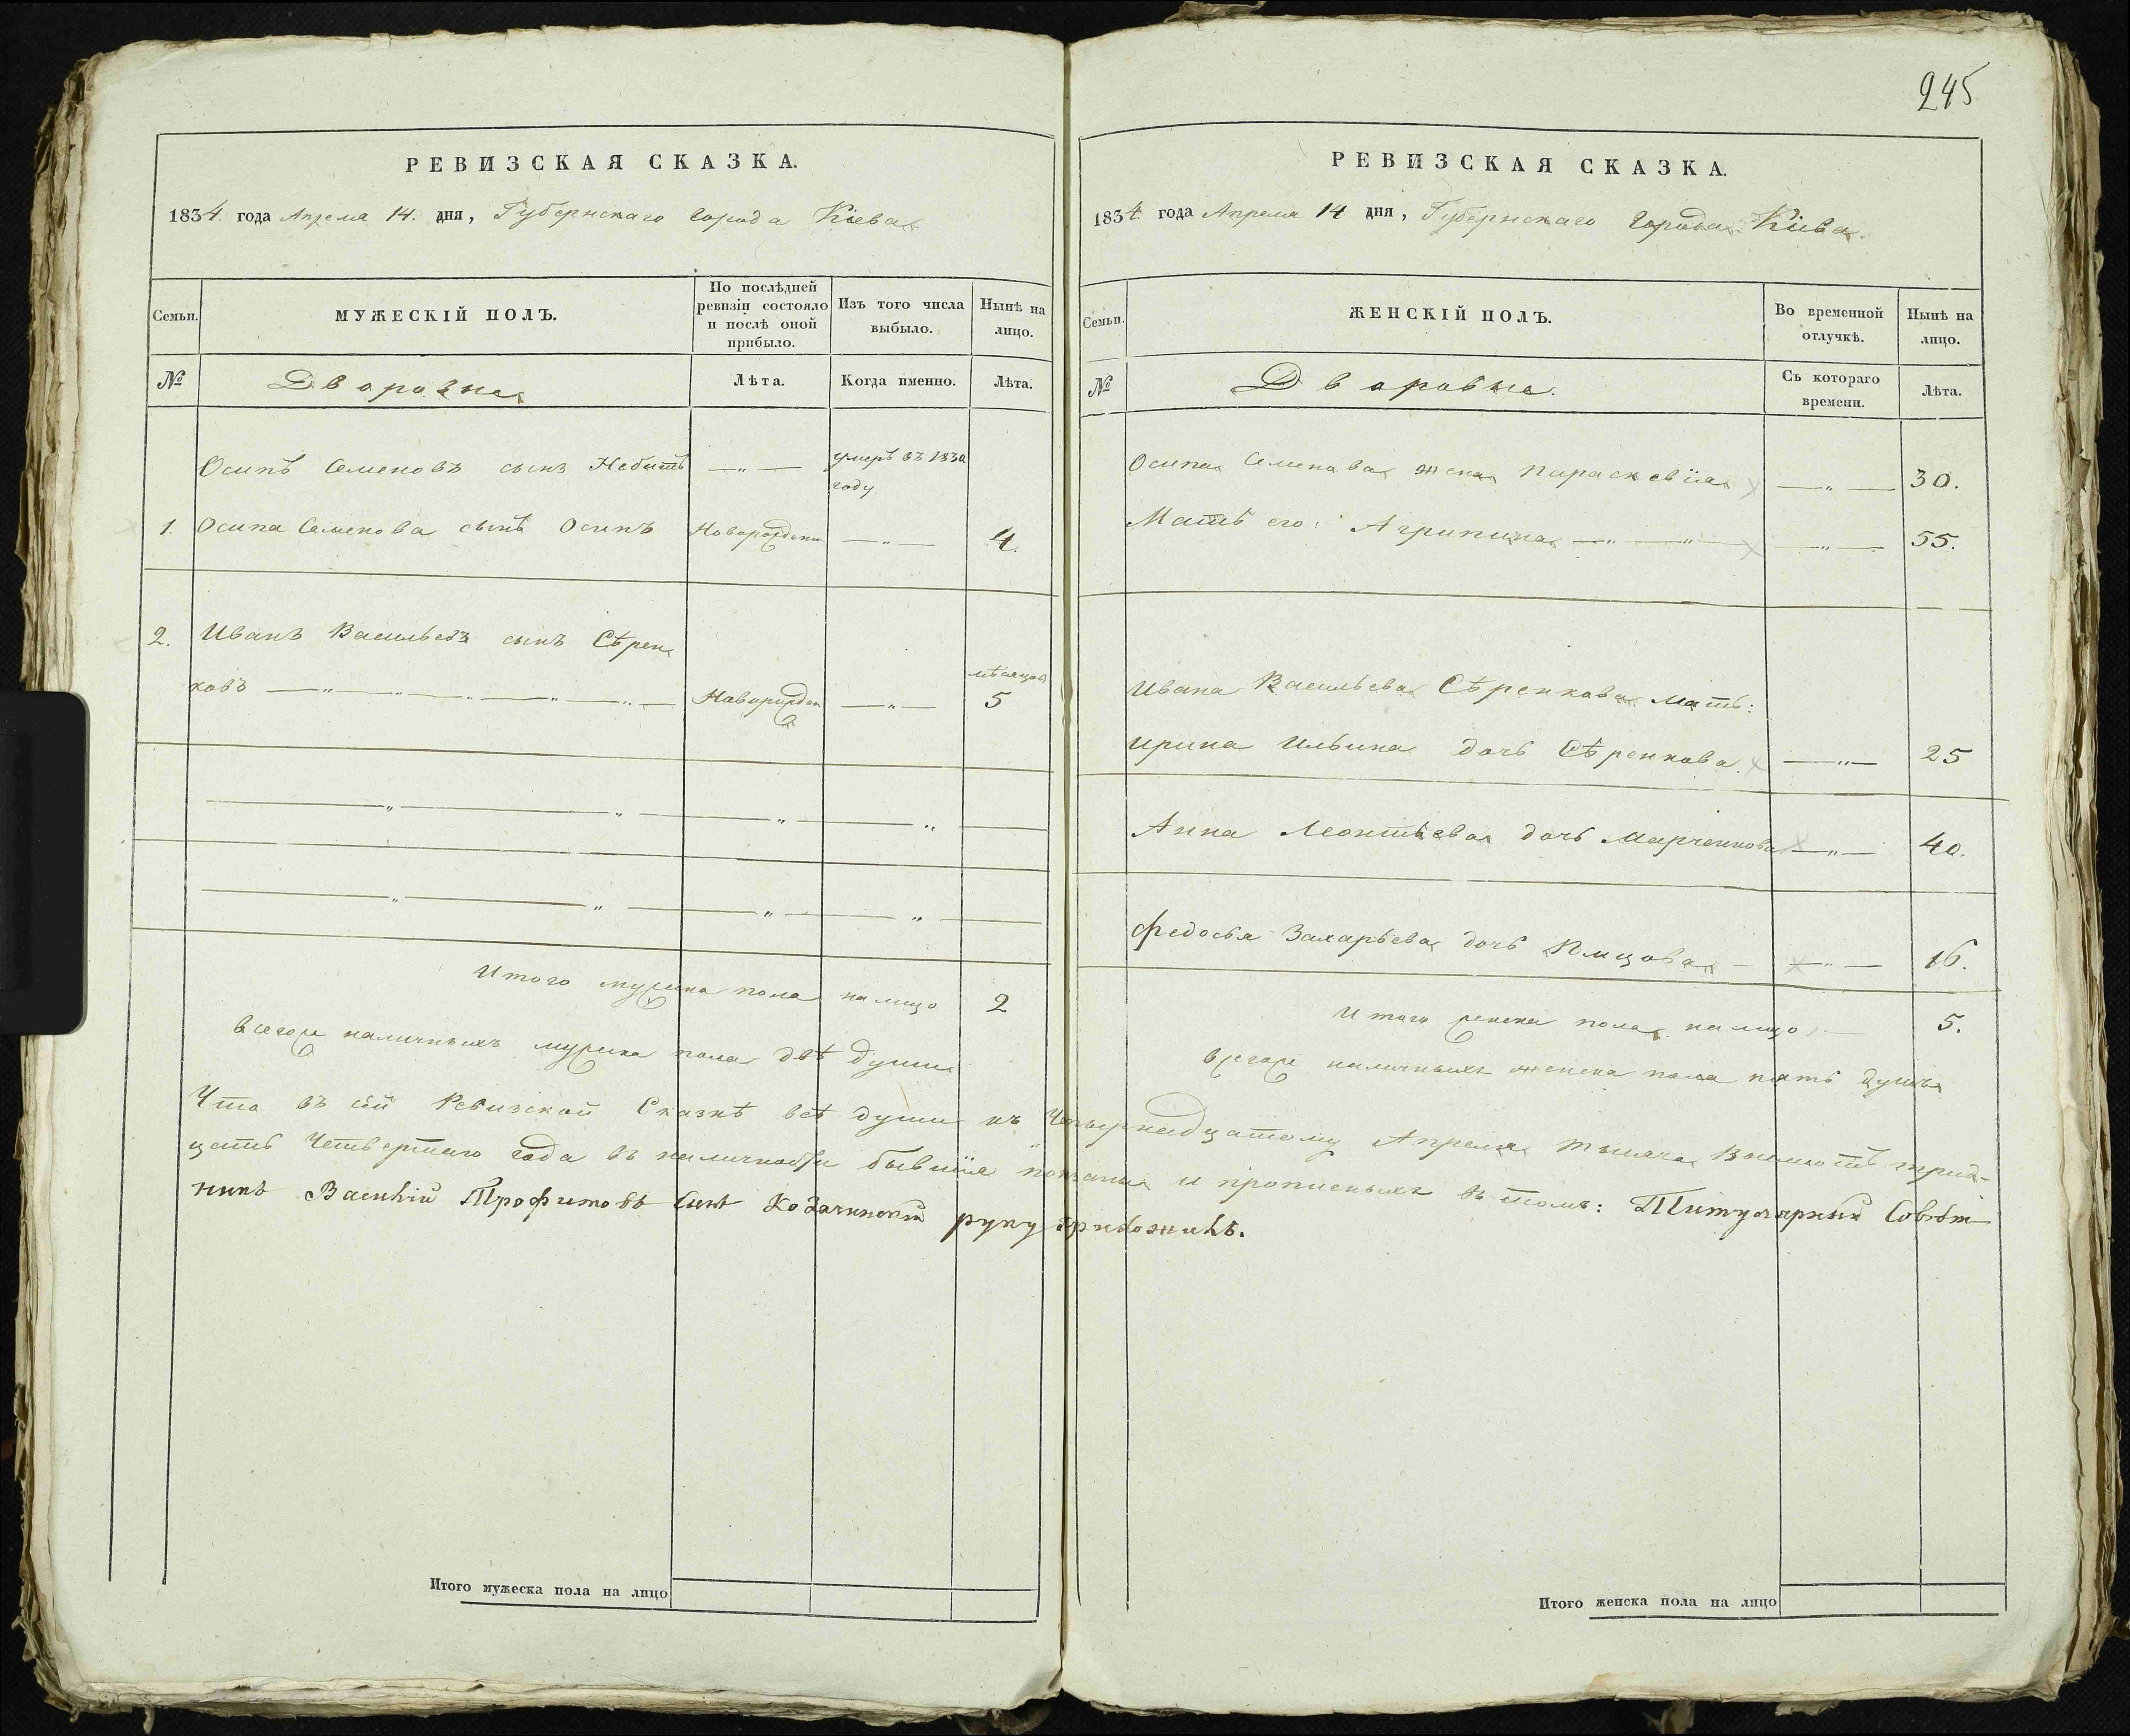 245
РЕВИЗСКАЯ СКАЗКА.
1834. года Апреля 14. дня, Губернскаго Города Кіева
Семьи.
МУЖЕСКІЙ ПОЛЪ.
По послѣдней ревизіи состояло и послѣ оной прибыло.
Изъ того числа выбыло.
Нынѣ на лицо.
№
Дворовые
Лѣта.
Когда именно.
Лѣта.
Осипъ Семеновъ сынъ — „ — умеръ въ 1830
году
1. Осипа Семенова сынъ Осипъ Новорожден — „ — 4.
2. Иванъ Васильевъ сынъ Сѣрен
мѣсяцовъ
ковъ — „ — „ — „ — „ — „ — Новорожден — „ — 5
— „ — „ — „ — „ —
— „ — „ — „ — „ —
Итого мужеска пола на лицо 2
Всего наличныхъ мужеска пола двѣ души
РЕВИЗСКАЯ СКАЗКА.
1834. года Апреля 14 дня, Губернскаго Города Кіева.
Семьи.
ЖЕНСКІЙ ПОЛЪ.
Во временной отлучкѣ.
Нынѣ на лицо.
№
Дворовые.
Съ котораго времени.
Лѣта.
Осипа Семенова жена Параскевія — „ — 30.
Мать его: Агрипина — „ — „ — — „ — 55.
Ивана Васильева Сѣренкова мать:
Ирина Ильина дочь Сѣренкова. — „ — 25
Анна Леонтьева дочь Марченкова — „ — 40.
Федосья Захарьева дочь — — „ — 16.
Итого женска пола на лицо, — 5.
Всего наличныхъ женска пола пять душъ
Что въ сей Ревизской Сказкѣ всѣ души къ Четырнадцатому Апреля тысяча восемьсотъ трид-
цать Четвертаго года въ наличности бывшія показаны и прописныхъ въ томъ: Титулярный Совѣт
никъ Василій Трофимовъ Сынъ Козачинскій руку приложилъ.
Итого мужеска пола на лицо
Итого женска пола на лицо